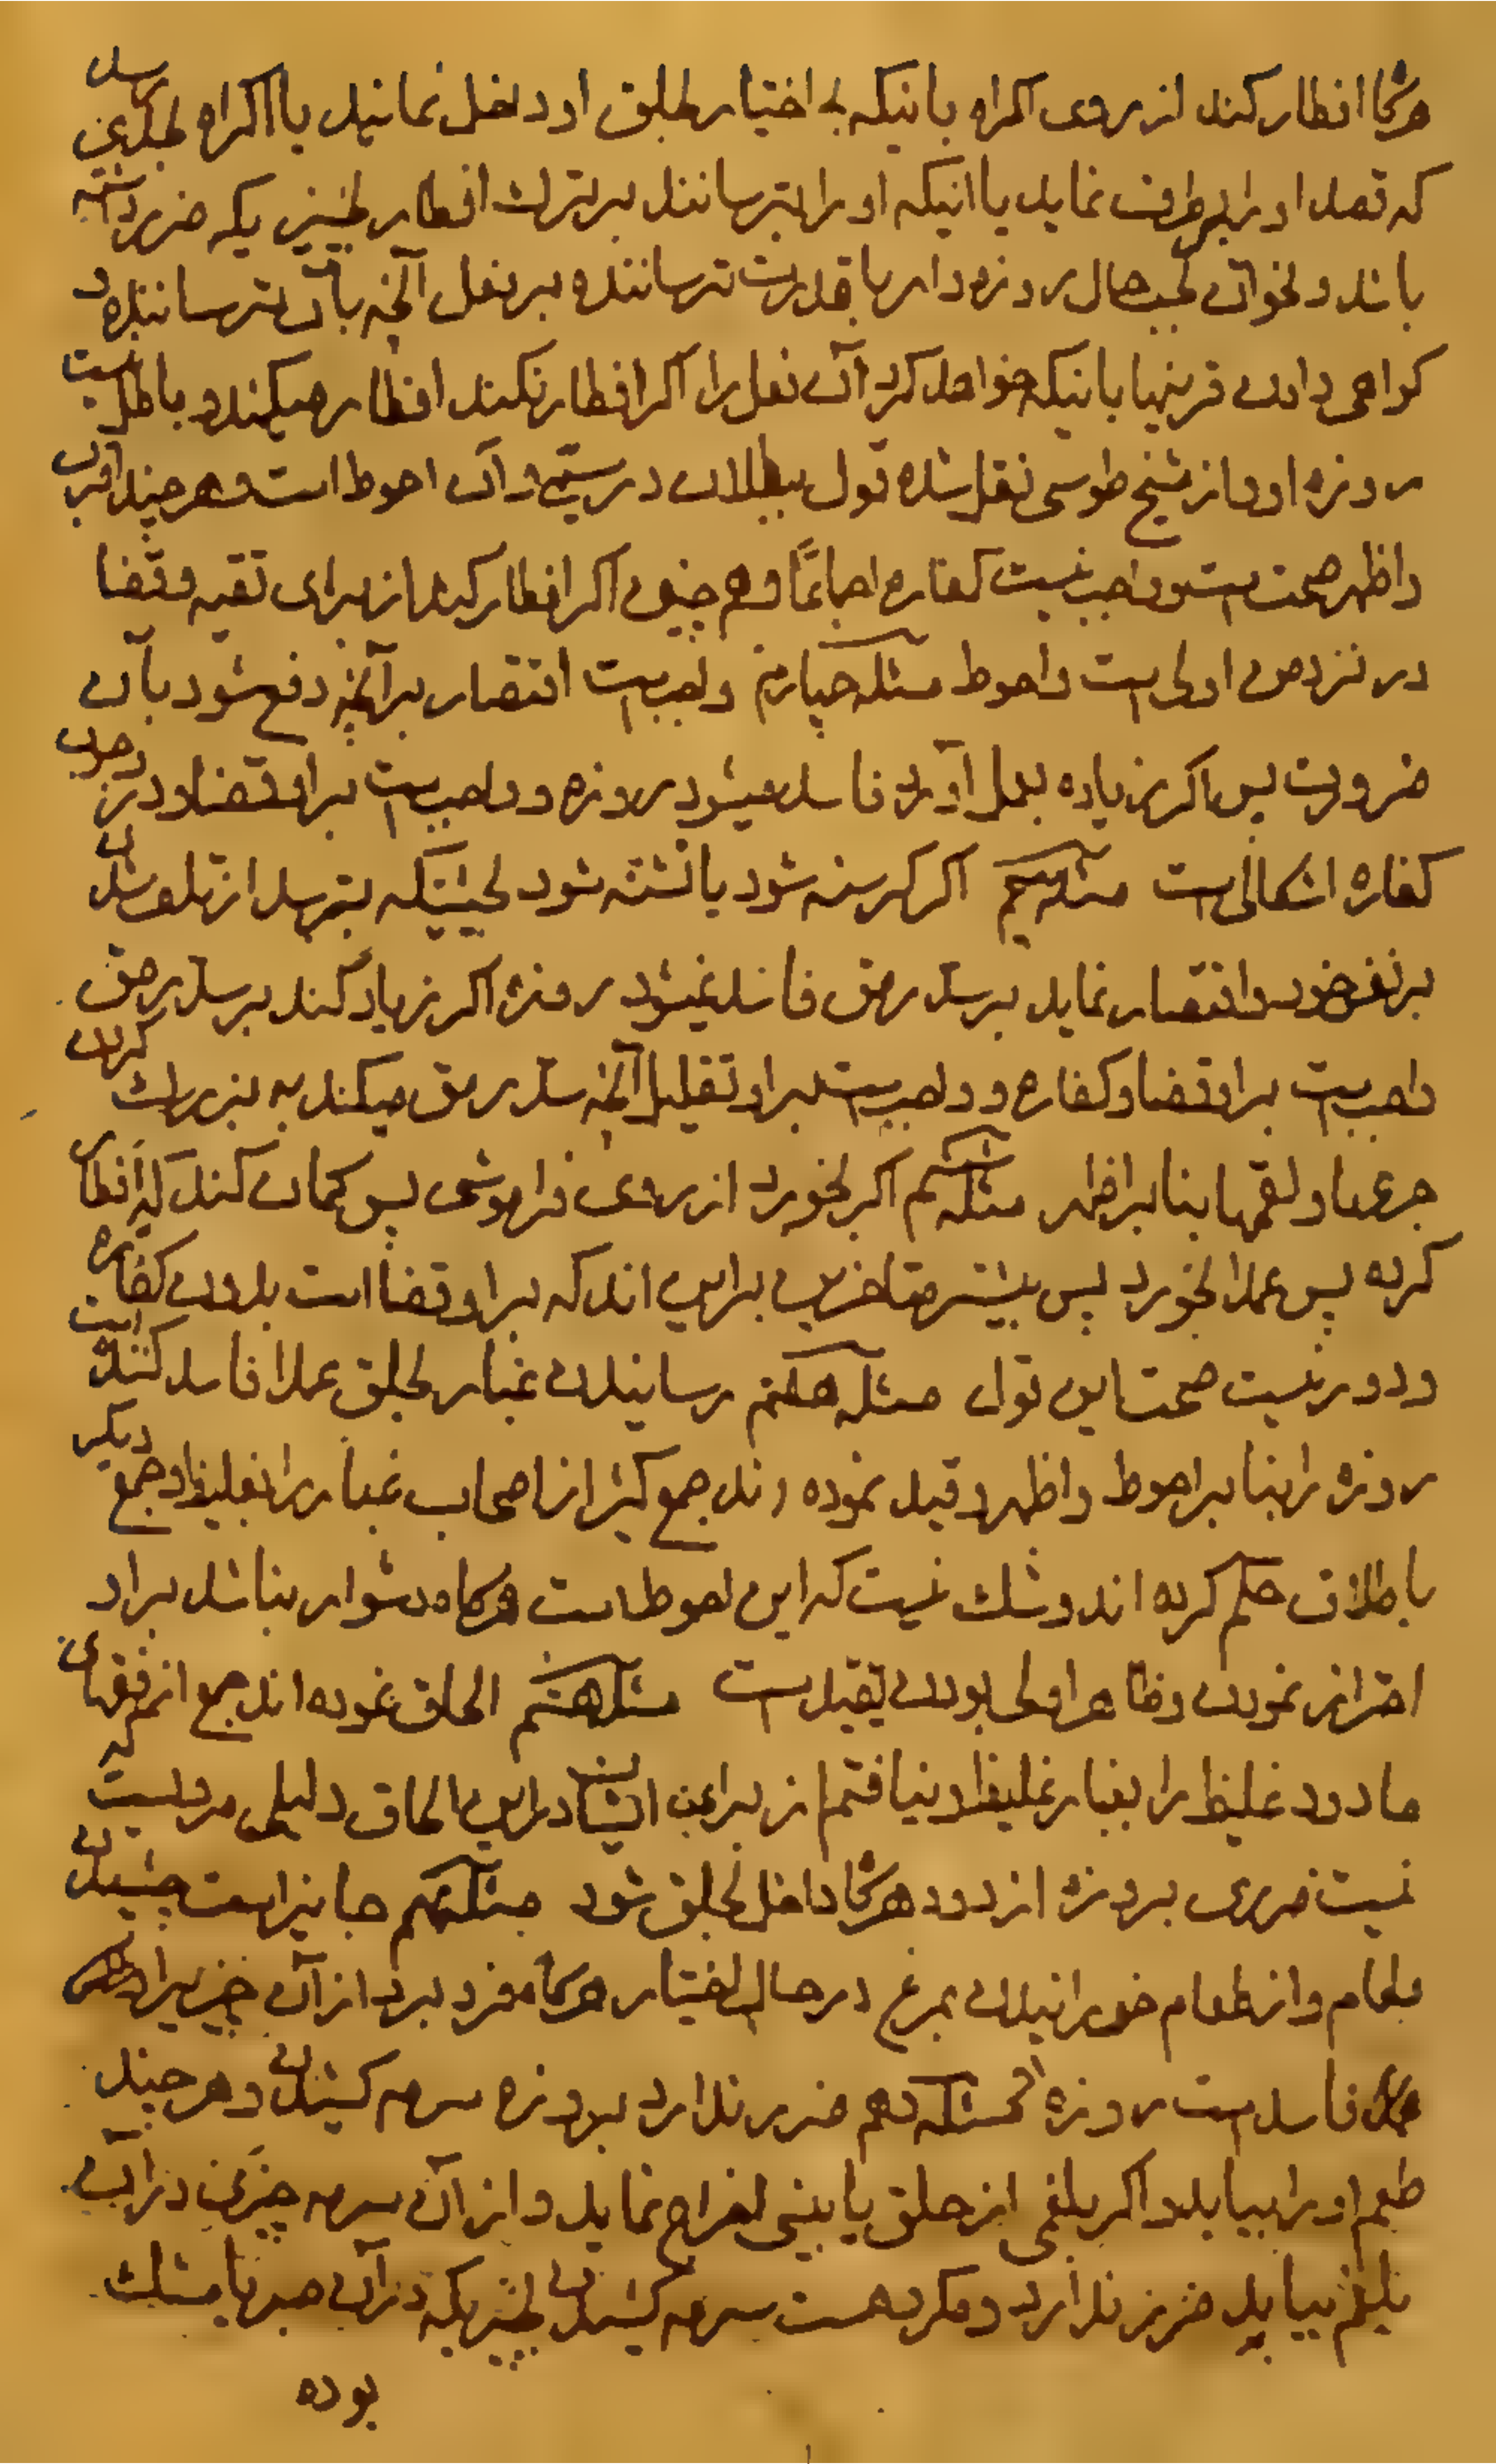 هرگاه افطار کند از روی اکراه باینکه بی اختیار بحلق او داخل نمایند یا اکراه بحدی رسد
که قصد او را برطرف نماید یا اینکه او را بترسانند بر ترک افطار بچیزیکه ضرر داشته
باشد و بخوان بحسب حال روزه دار با قدرت ترساننده بر فعل آنچه بآن ترساننده و
کواهی دادن قرینها باینکه خواهد کرد آن فعل را اکر افطار نکند افطار میکند و باطل نیست
روزه او و از شیخ طوسی نقل شده قول ببطلان در سیّمی و آن احوط است و هر چند اقرب
و اظهر صحت است و واجب نیست کفاره اجماعًا و هم چنین اکر افطار کند از برای تقیه و قضا
در نزد من اولی است و احوط مسئله چهارم واجب است اقتصار بر آنچه دفع شود بآن
ضرورت پس اکر زیاده بعمل آورد فاسد میشود روزه و واجب است بر او قضا و در وجوب
کفاره اشکالی است مسئله پنجم اکر کرسنه شود یا تشنه شود بحیثیتیکه بترسد از تلف شدن
بر نفس خود و اقتصار نماید بر سد رمق فاسد نمیشود روزه اکر زیاد کند بر سد رمق
واجب است بر او قضا و کفاره و واجب است بر او تقلیل آنچه سد رمق میکند به بزرك کردن
جرعها و لقمها بنا بر اظهر مسئله ششم اکر بخورد از روی فراموشی پس کمان کند که افطار
کرده پس عمدا بخورد پس بیشتر متاخرین براین اند که بر او قضا است بدون کفاره
و دور نیست صحت این قول مسئله هفتم رسانیدن غبار بحلق عمدا فاسد کننده است
روزه را بنا بر احوط و اظهر و قید نموده اند جمع کثیر از اصحاب غبار را بغلیظ و جمع دیکر
باطلاق حکم کرده اند و شك نیست که این احوط است هرگاه دشوار نباشد بر او
احتراز نمودن و ظاهر اولی بودن تقیید است مسئله هشتم الحاق نموده اند جمع از فقهای
ما دود غلیظ را بغبار غلیظ و نیافتم از برای ایشان در این الحاق دلیلی مدعیست که
نیست ضرری بروزه از دود هرگاه داخل بحلق شود مسئله نهم جایز است چشیدن
طعام و از طعام خورانیدن بمرغ در حال اختیار هرگاه فرو برد از آن چیزیرا
عمدا فاسد است روزه مسئله دهم ضرر ندارد بروزه سرمه کشیدن و هر چند
طعم او را بیابد و اکر بلغمی از حلق یا بینی اخراج نماید و از آن سرمه چیزی در آن
بلغم بیابد ضرر ندارد و مکروهست سرمه کشیدن بچیزیکه در آن صبر یا مشك
بوده